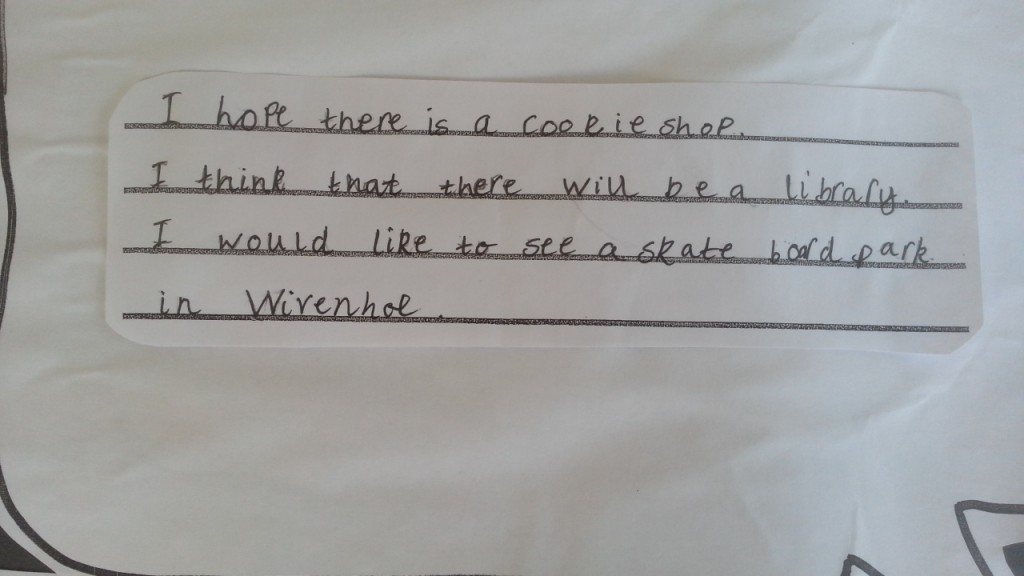 I hope there is a cookie shop.
I think that there will be a library.
I would like to see a skate board park
in Wivenhoe.